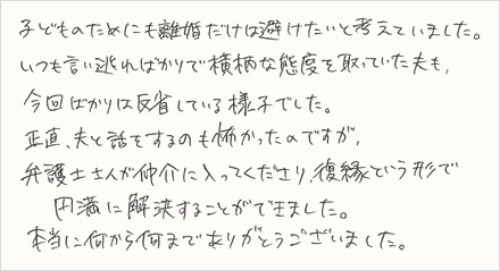 子どものためにも離婚だけは避けたいと考えていました。
いつも言い逃ればかりで横柄な態度を取っていた夫も、
今回ばかりは反省している様子でした。
正直、夫と話をするのも怖かったのですが、
弁護士さんが仲介に入ってくださり、復縁という形で
円満に解決することができました。
本当に何から何までありがとうございました。